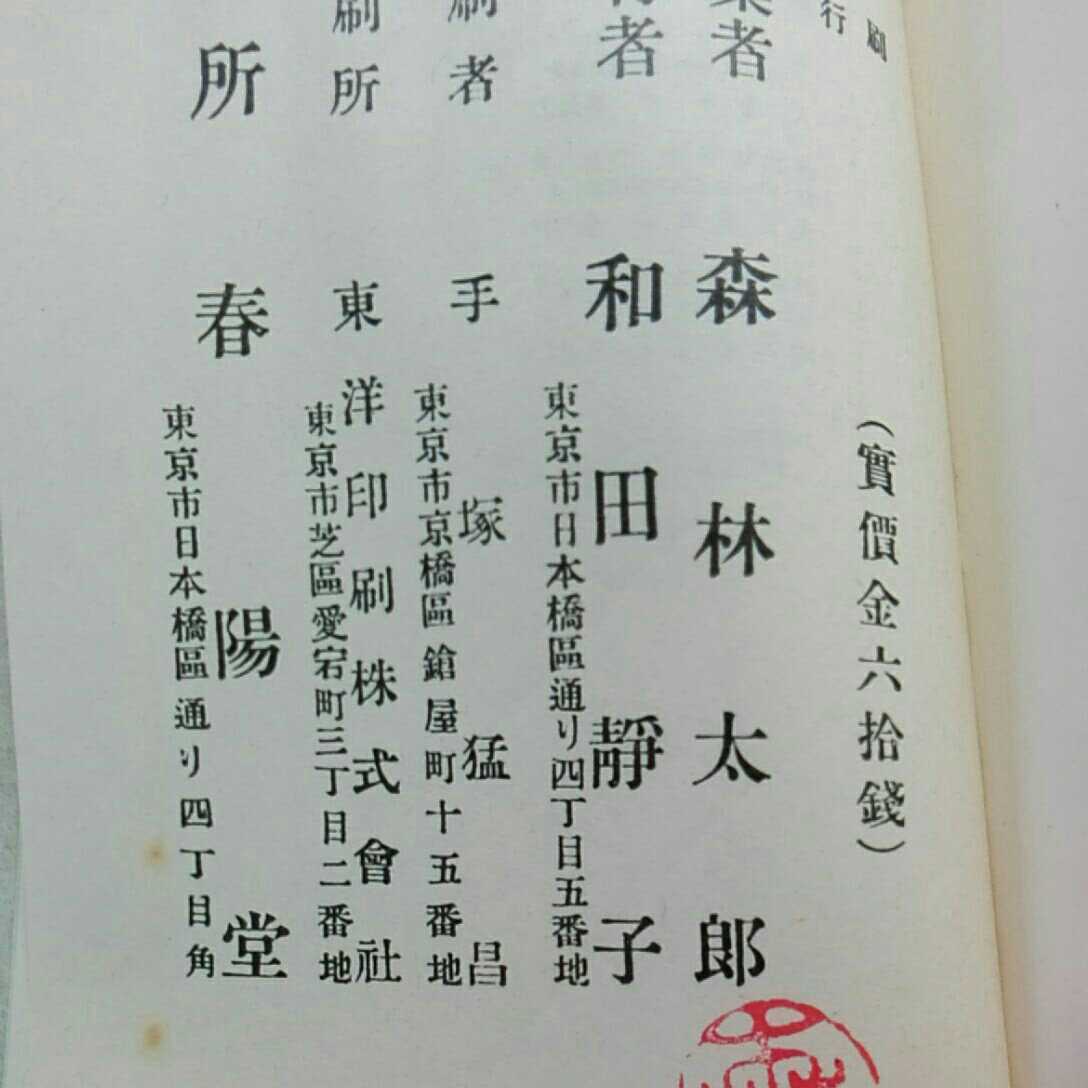 刷
行
(實價金六拾錢)
者 森林太郎
者 和田靜子
東京市日本橋區通り四丁目五番地
刷者 手塚猛昌
東京市京橋區鎗屋町十五番地
刷所 東洋印刷株式會社
東京市芝區愛宕町三丁目二番地
所 春陽堂
東京市日本橋區通り四丁目角